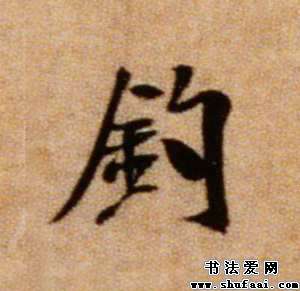 釣
书法爱网
www.shufaai.com